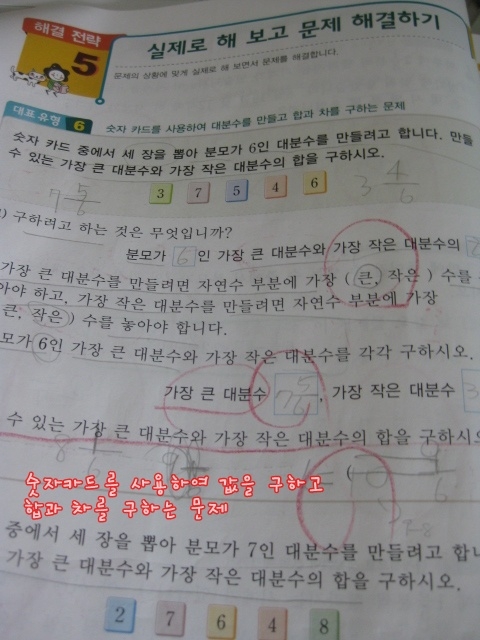 해결 전략
5
실제로 해 보고 문제 해결하기
문제의 상황에 맞게 실제로 해 보면서 문제를 해결합니다.
대표 유형 6 숫자 카드를 사용하여 대분수를 만들고 합과 차를 구하는 문제
숫자 카드 중에서 세 장을 뽑아 분모가 6인 대분수를 만들려고 합니다. 만들
수 있는 가장 큰 대분수와 가장 작은 대분수의 합을 구하시오.
7 5/6
3 7 5 4 6
3 4/6
) 구하려고 하는 것은 무엇입니까?
분모가 6 인 가장 큰 대분수와 가장 작은 대분수의
가장 큰 대분수를 만들려면 자연수 부분에 가장 ( 큰, 작은 ) 수를
아야 하고, 가장 작은 대분수를 만들려면 자연수 부분에 가장
큰, 작은 ) 수를 놓아야 합니다.
모가 6인 가장 큰 대분수와 가장 작은 대분수를 각각 구하시오.
가장 큰 대분수 7 5/6, 가장 작은 대분수 3
수 있는 가장 큰 대분수와 가장 작은 대분수의 합을 구하시오
숫자카드를 사용하여 값을 구하고
합과 차를 구하는 문제
중에서 세 장을 뽑아 분모가 7인 대분수를 만들려고 합니
가장 큰 대분수와 가장 작은 대분수의 합을 구하시오.
2 7 6 4 8